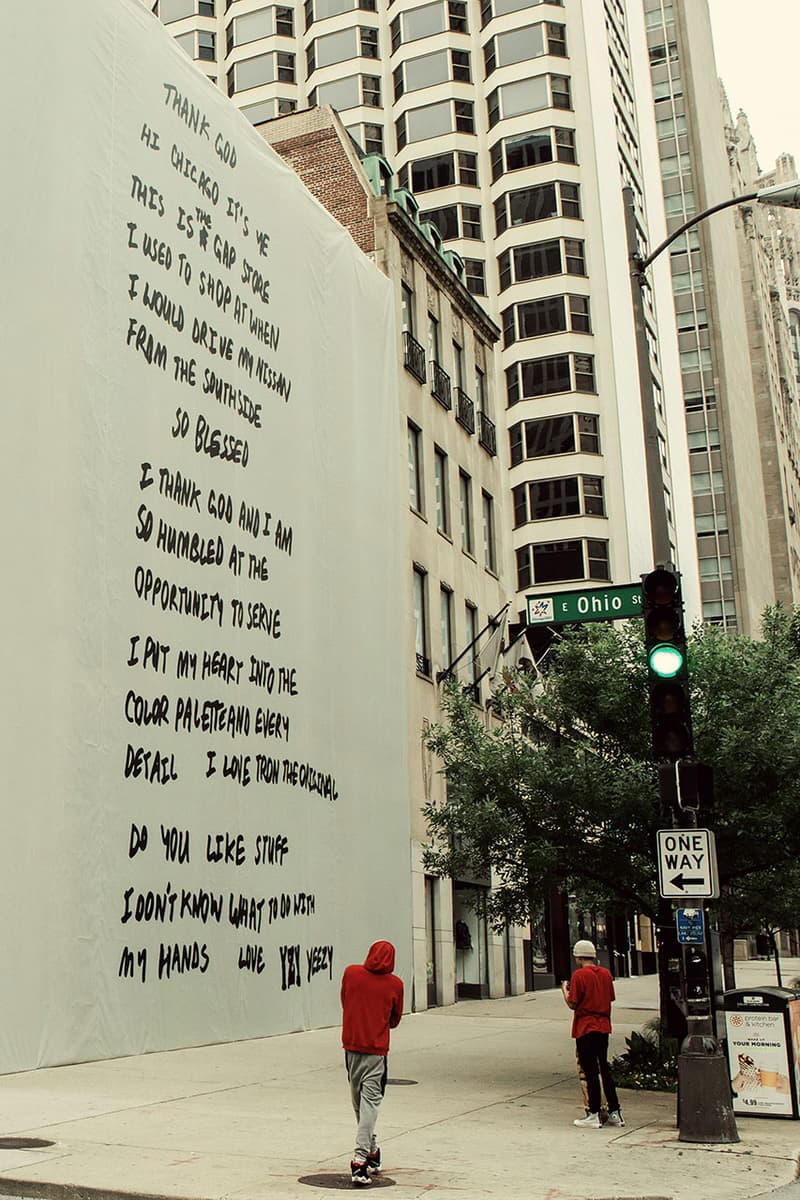 THANK GOD
HI CHICAGO IT'S YE
THIS IS THE GAP STORE
I USED TO SHOP AT WHEN
I WOULD DRIVE MY NISSAN
FROM THE SOUTHSIDE
SO BLESSED
I THANK GOD AND I AM
SO HUMBLED AT THE
OPPORTUNITY TO SERVE
I PUT MY HEART INTO THE
COLOR PALETTE AND EVERY
DETAIL I LOVE TRON THE ORIGINAL
DO YOU LIKE STUFF
I DON'T KNOW WHAT TO DO WITH
MY HANDS LOVE YZY YEEZY
E Ohio St
ONE
WAY
protein bar
& kitchen
WAKE UP
YOUR MORNING
$4.99